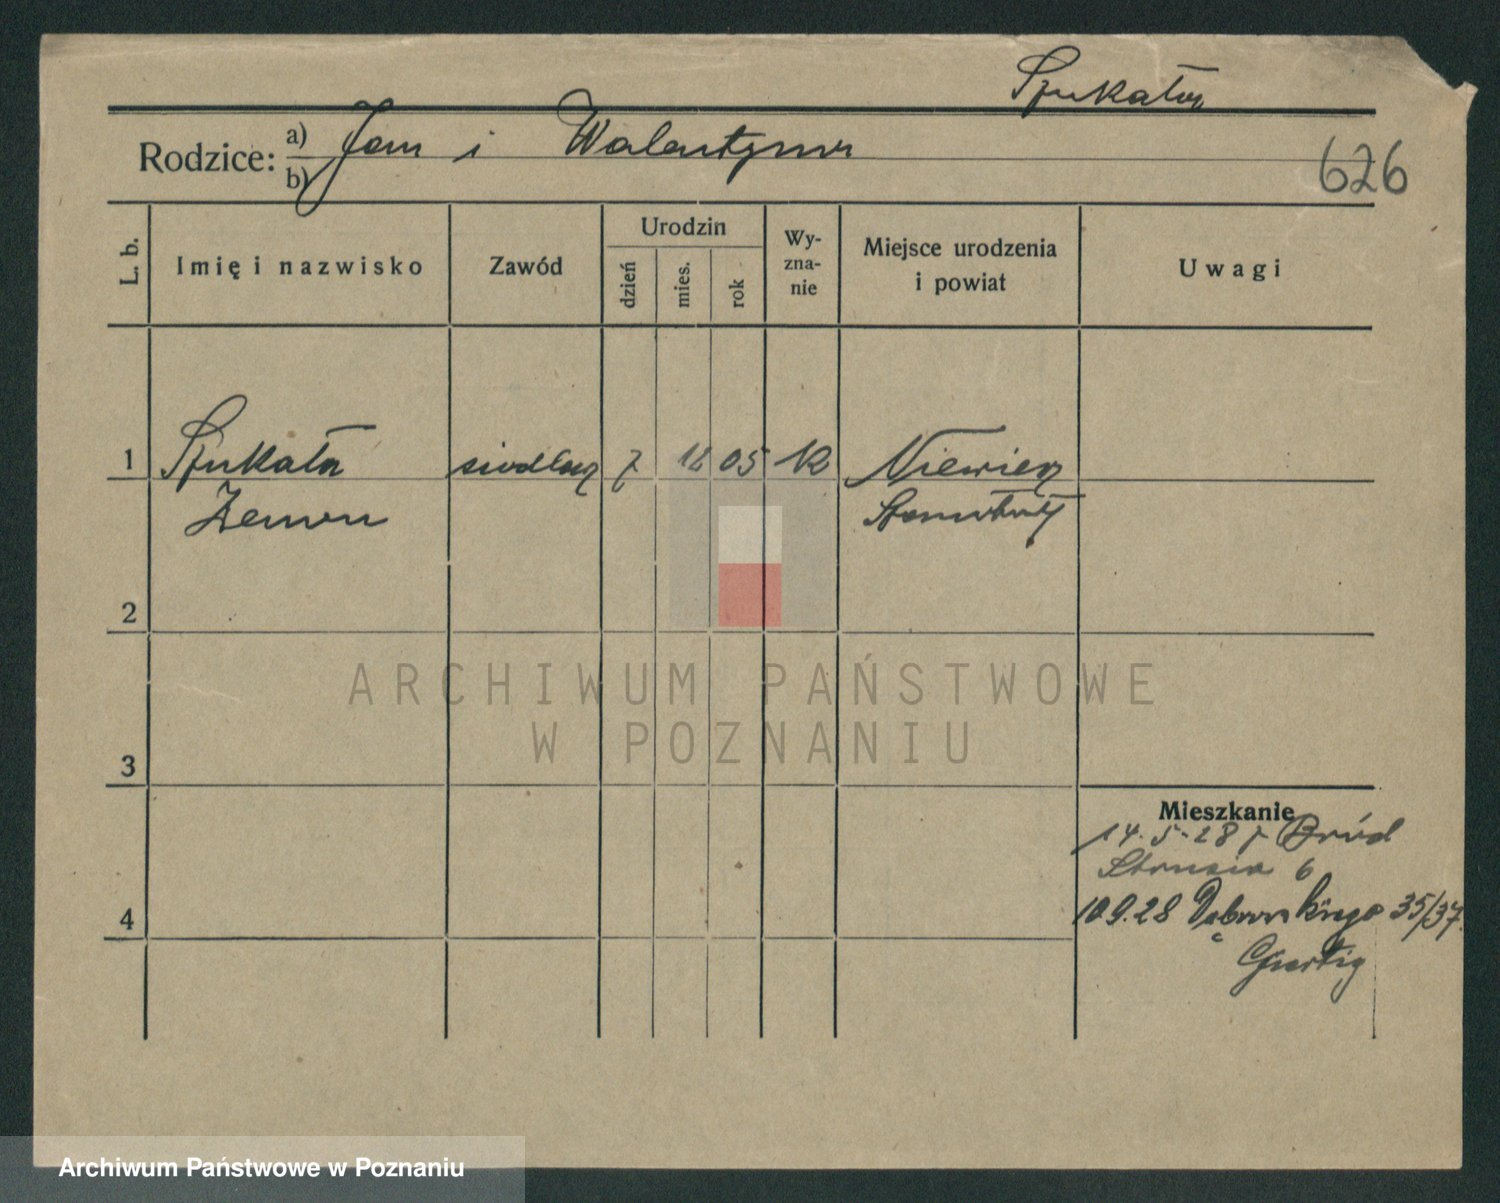 Szukała
Rodzice: a) Jan i Walentyna
b)
626
L. b.
Imię i nazwisko
Zawód
Urodzin
dzień
mies.
rok
Wy-
zna-
nie
Miejsce urodzenia
i powiat
Uwagi
1 Szukała siodlarz 7 12 05 Niewierz
Zenon Szamotuły
2
3
4
Mieszkanie
14.5.28 Bród
Strusia 6
10.9.28 Dąbrowskiego 35/37
ARCHIWUM PAŃSTWOWE
W POZNANIU
Archiwum Państwowe w Poznaniu